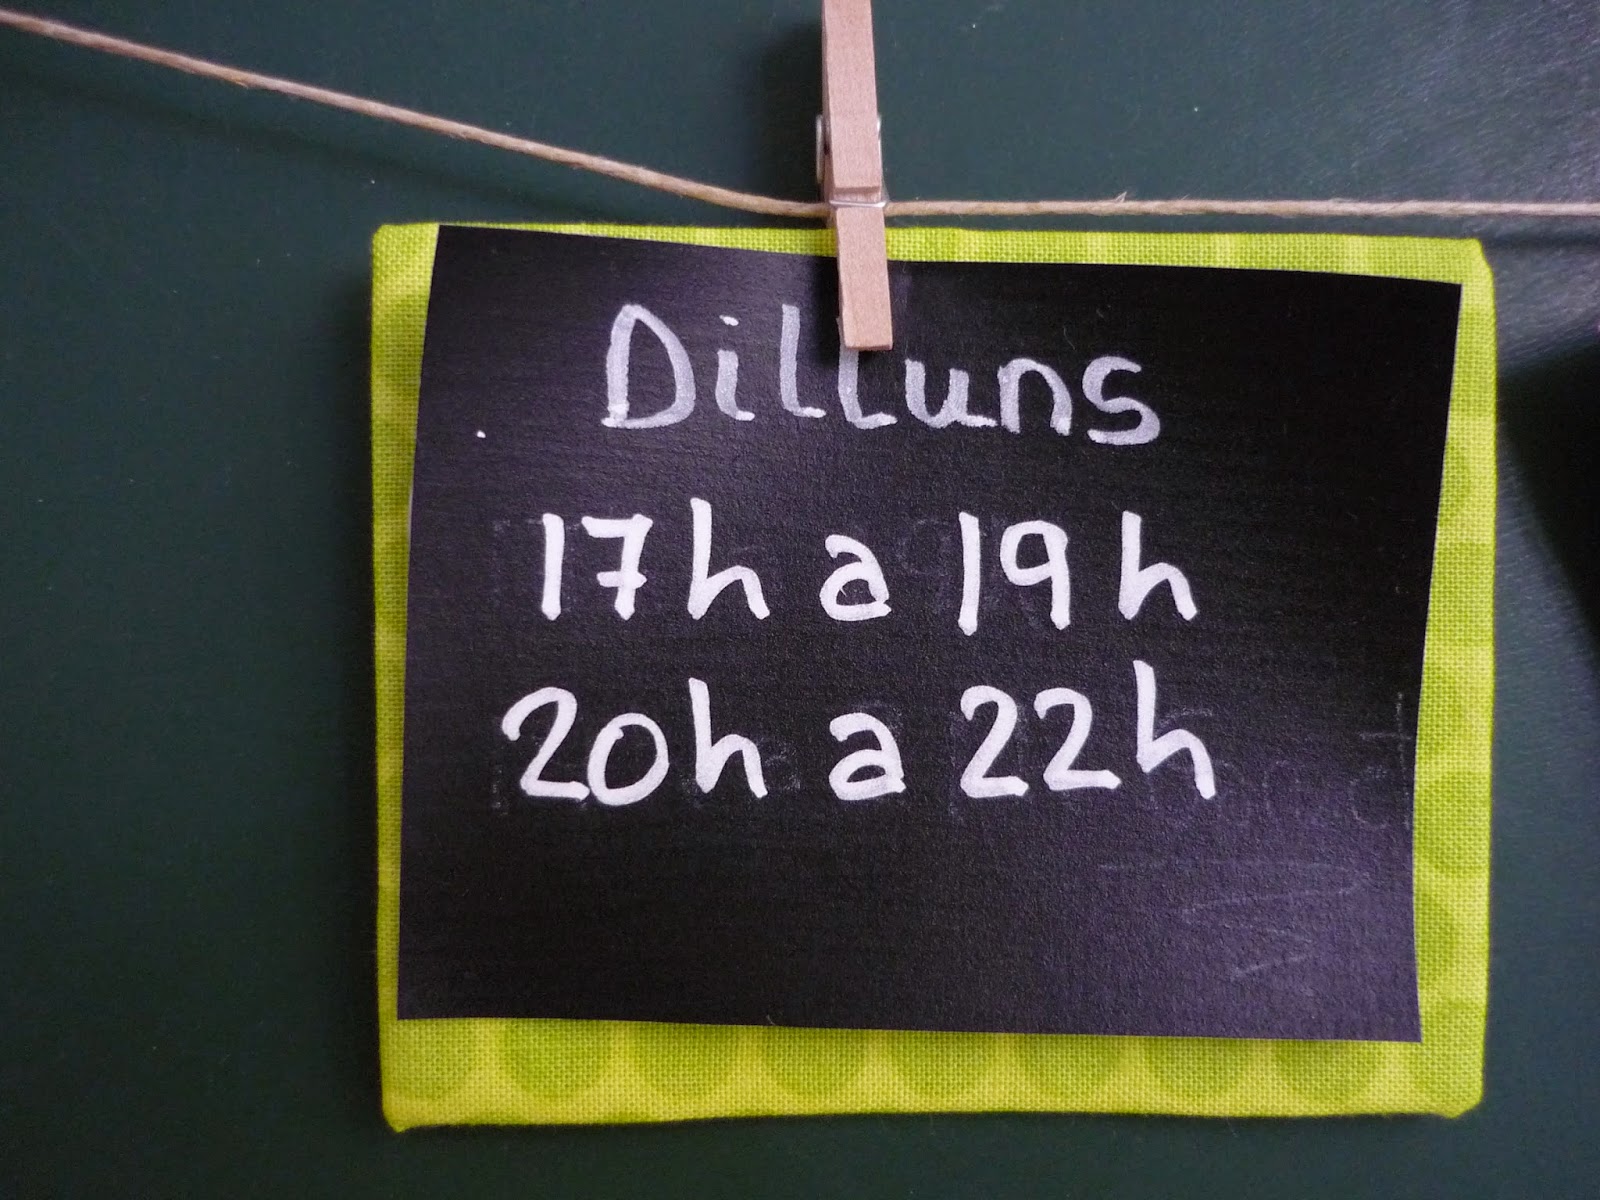 Dilluns
17h a 19h
20h a 22h